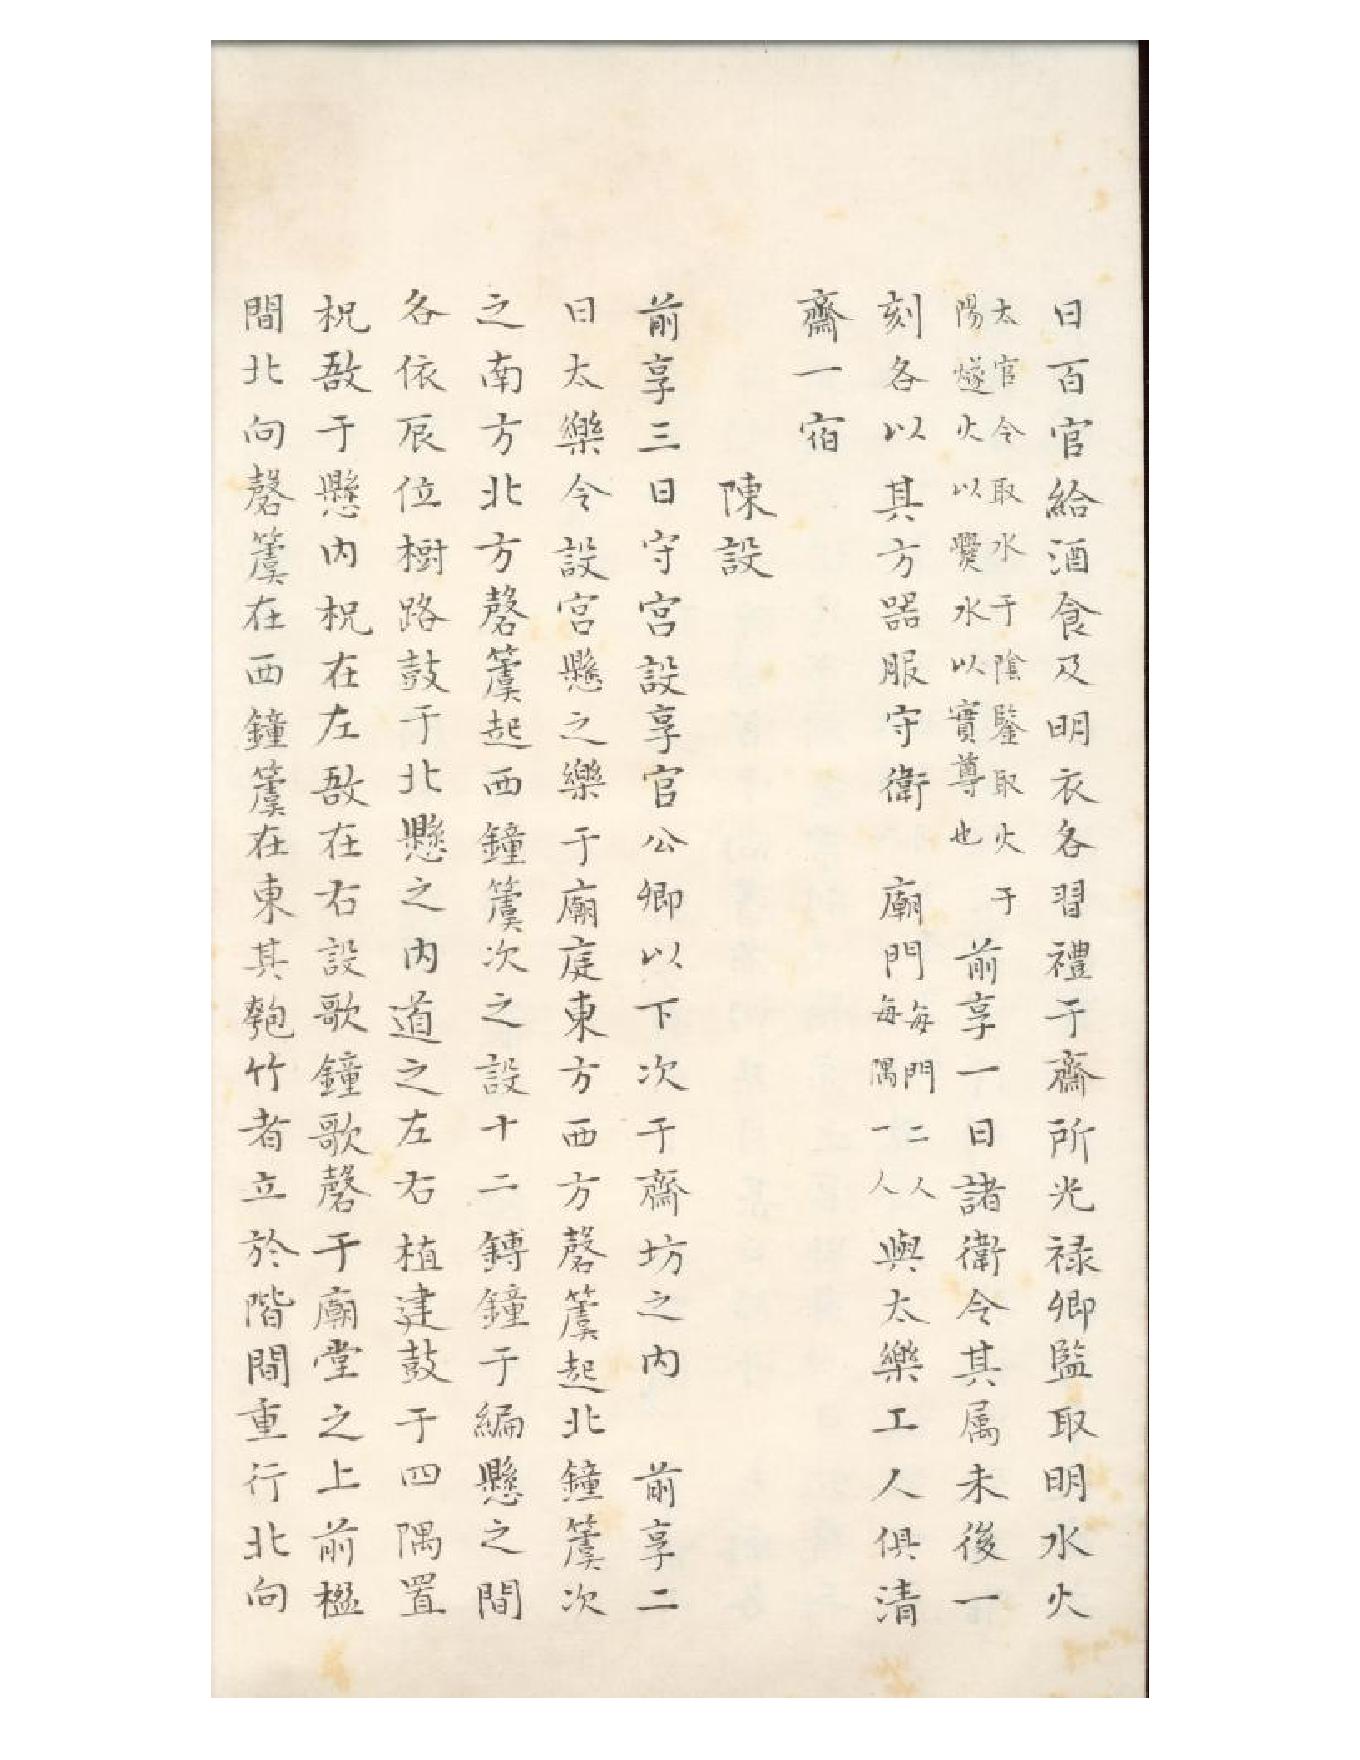 日百官給酒食及明衣各習禮于齋所光禄卿監取明水火
太官令取水于陰鑒取火于
陽燧火以爨水以實尊也
前享一日諸衛令其属未後一
刻各以其方器服守衛 廟門
每門二人
每隅一人
與太樂工人俱清
齋一宿
陳設
前享三日守宮設享官公卿以下次于齋坊之内 前享二
日太樂令設宮懸之樂于廟庭東方西方磬簴起北鐘簴次
之南方北方磬簴起西鐘簴次之設十二鎛鐘于編懸之間
各依辰位樹路鼓于北懸之内道之左右植建鼓于四隅置
柷敔于懸内柷在左敔在右設歌鐘歌磬于廟堂之上前楹
間北向磬簴在西鐘簴在東其匏竹者立於階間重行北向